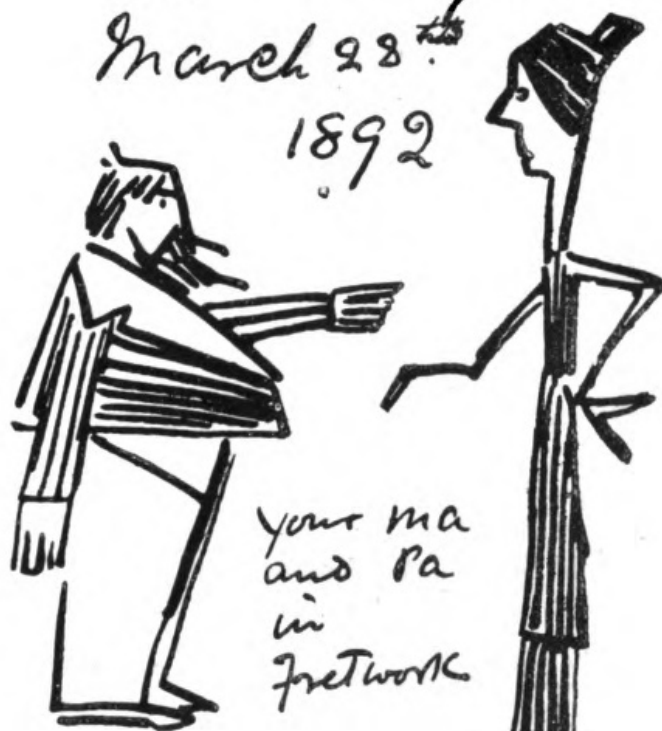 March 28th
1892
your ma
and Pa
in
Fretwork